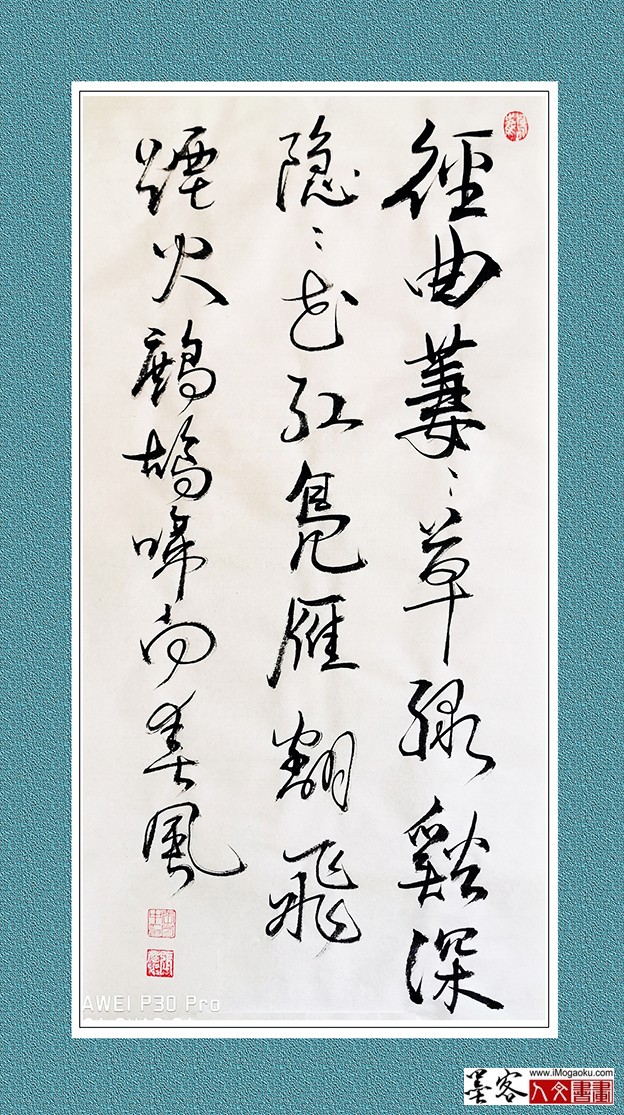 徑曲萋〻草綠谿深
隱〻花紅鳧雁翻飛
煙火鷓鴣啼向春風
AWEI P30 Pro
墨客
www.iMogaoku.com
人文書畫